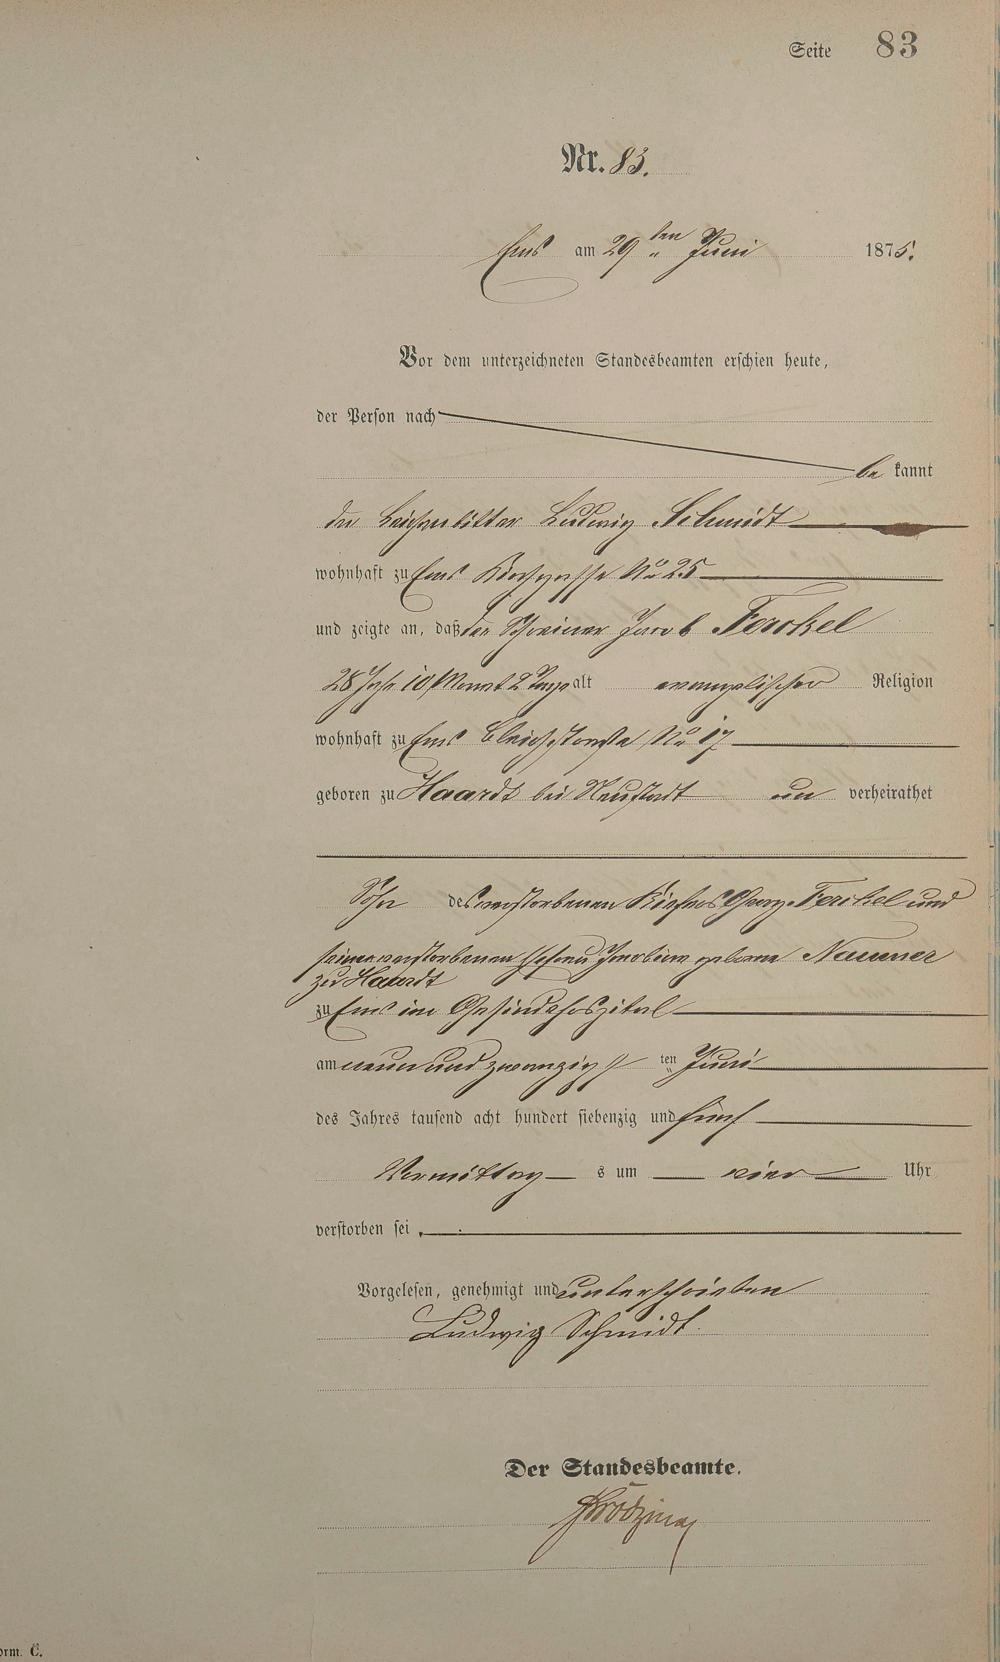 Seite 83
Nr. 83.
Ems am 29ten Juni 1875.
Vor dem unterzeichneten Standesbeamten erschien heute,
der Person nach
be kannt
der Leichenbitter Ludwig Schmidt
wohnhaft zu Ems Kirchgasse No 25
und zeigte an, daß der Schreiner Jacob Ferckel
28 Jahr 10 Monat 2 Tage alt evangelischer Religion
wohnhaft zu Ems Bleichstraße No 17
geboren zu Haardt bei Neustadt un verheirathet
Sohn des verstorbenen Küfers Georg Ferckel und
seiner verstorbenen Ehefrau Jacobine geborne
zu Haardt
zu Ems im Gesindehospital
am neun und zwanzigsten Juni
des Jahres tausend acht hundert siebenzig und fünf
Vormittag s um vier Uhr
verstorben sei.
Vorgelesen, genehmigt und unterschrieben
Ludwig Schmidt.
Der Standesbeamte.
orm. C.